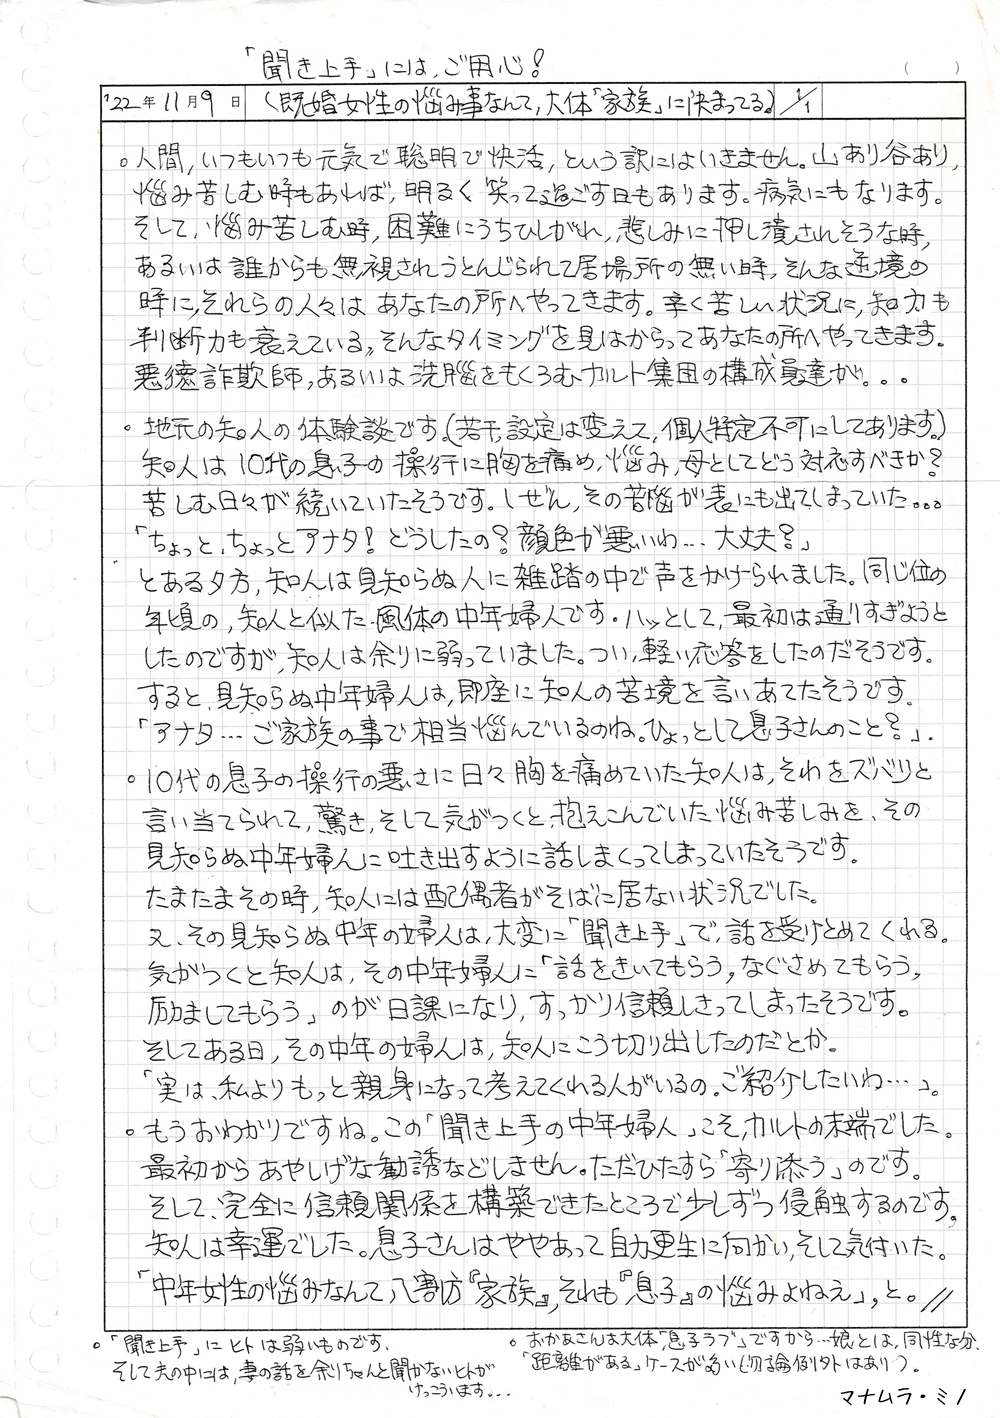 「聞き上手」には、ご用心！
（　　）
'22年 11月9日 （既婚女性の悩み事なんて，大体「家族」に決まってる） 1/1
○人間，いつもいつも元気で聡明で快活，という訳にはいきません。山あり谷あり，
悩み苦しむ時もあれば，明るく笑って過ごす日もあります。病気にもなります。
そして，悩み苦しむ時，困難にうちひしがれ，悲しみに押し潰されそうな時，
あるいは誰からも無視されうとんじられて居場所の無い時，そんな逆境の
時に，それらの人々はあなたの所へやってきます。辛く苦しい状況に，知力も
判断力も衰えている，そんなタイミングを見はからってあなたの所へやってきます。
悪徳詐欺師，あるいは洗脳をもくろむカルト集団の構成員達が。。。
○地元の知人の体験談です。（若干，設定は変えて，個人特定不可にしてあります。）
知人は10代の息子の操行に胸を痛め，悩み，母としてどう対応すべきか？
苦しむ日々が続いていたそうです。しぜん，その苦悩が表にも出てしまっていた。。。
「ちょっと，ちょっとアナタ！どうしたの？顔色が悪いわ…大丈夫？」
とある夕方，知人は見知らぬ人に雑踏の中で声をかけられました。同じ位の
年頃の，知人と似た風体の中年婦人です。ハッとして，最初は通りすぎようと
したのですが，知人は余りに弱っていました。つい，軽い応答をしたのだそうです。
すると，見知らぬ中年婦人は，即座に知人の苦境を言いあてたそうです。
「アナタ…ご家族の事で相当悩んでいるのね。ひょっとして息子さんのこと？」．
○10代の息子の操行の悪さに日々胸を痛めていた知人は，それをズバリと
言い当てられて，驚き，そして気がつくと，抱えこんでいた悩み苦しみを、その
見知らぬ中年婦人に吐き出すように話しまくってしまっていたそうです。
たまたまその時，知人には配偶者がそばに居ない状況でした。
又、その見知らぬ中年の婦人は，大変に「聞き上手」で，話を受けとめてくれる。
気がつくと知人は，その中年婦人に「話をきいてもらう，なぐさめてもらう，
励ましてもらう」のが日課になり，すっかり信頼しきってしまったそうです。
そしてある日，その中年の婦人は，知人にこう切り出したのだとか。
「実は、私よりもっと親身になって考えてくれる人がいるの。ご紹介したいわ…」。
○もうおわかりですね。この「聞き上手の中年婦人」こそ，カルトの末端でした。
最初からあやしげな勧誘などしません。ただひたすら「寄り添う」のです。
そして、完全に信頼関係を構築できたところで少しずつ侵触するのです。
知人は幸運でした。息子さんはややあって自力更生に向かい，そして気付いた。
「中年女性の悩みなんて八割方『家族』，それも『息子』の悩みよねえ」，と。//
○「聞き上手」にヒトは弱いものです．
そして夫の中には，妻の話を余りちゃんと聞かないヒトが
けっこういます...
○おかあさんは大体，「息子ラブ」ですから…娘とは，同性な分，
「距離がある」ケースが多い（勿論例外はあり）．
マナムラ・ミノ